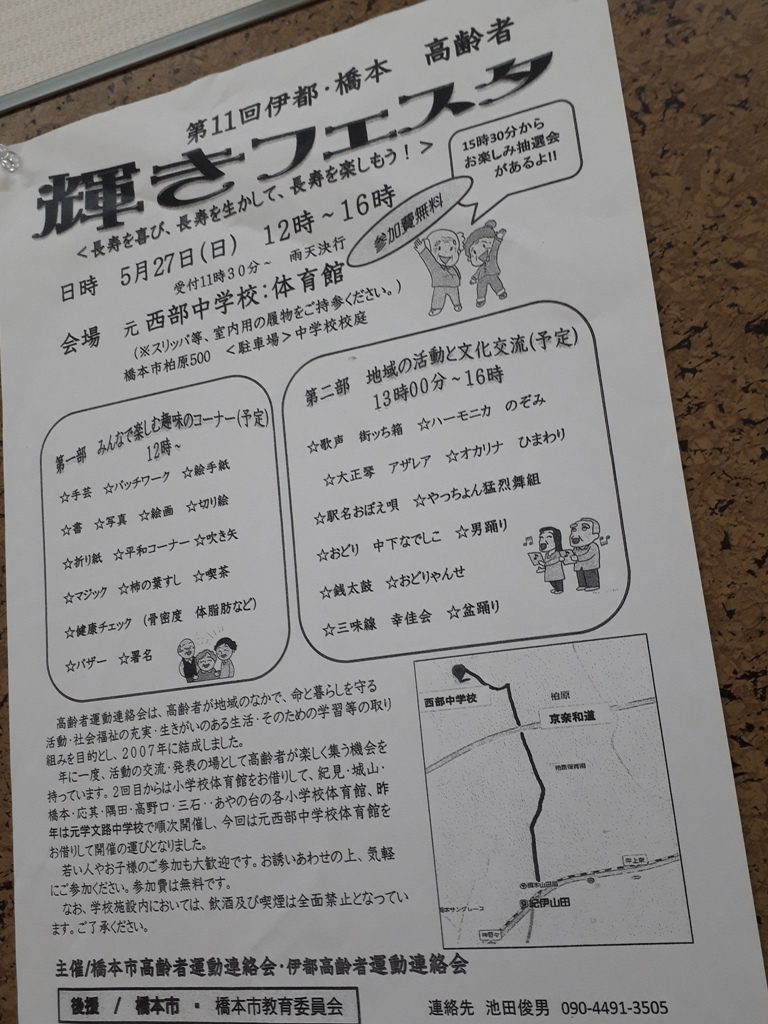 第11回伊都・橋本 高齢者
輝きフェスタ
＜長寿を喜び、長寿を生かして、長寿を楽しもう！＞
15時30分から
お楽しみ抽選会
があるよ!!
参加費無料
日時 5月27日(日) 12時～16時
受付11時30分～ 雨天決行
会場 元 西部中学校:体育館
(※スリッパ等、室内用の履物をご持参ください。)
橋本市柏原500 ＜駐車場＞中学校校庭
第一部 みんなで楽しむ趣味のコーナー(予定)
12時～
☆手芸 ☆パッチワーク ☆絵手紙
☆書 ☆写真 ☆絵画 ☆切り絵
☆折り紙 ☆平和コーナー ☆吹き矢
☆マジック ☆柿の葉すし ☆喫茶
☆健康チェック (骨密度 体脂肪など)
☆バザー ☆署名
第二部 地域の活動と文化交流(予定)
13時00分～16時
☆歌声 街ッち箱 ☆ハーモニカ のぞみ
☆大正琴 アザレア ☆オカリナ ひまわり
☆駅名おぼえ唄 ☆やっちょん猛烈舞組
☆おどり 中下なでしこ ☆男踊り
☆銭太鼓 ☆おどりゃんせ
☆三味線 幸佳会 ☆盆踊り
高齢者運動連絡会は、高齢者が地域のなかで、命と暮らしを守る
活動・社会福祉の充実・生きがいのある生活・そのための学習等の取り
組みを目的とし、2007年に結成しました。
年に一度、活動の交流・発表の場として高齢者が楽しく集う機会を
持っています。2回目からは小学校体育館をお借りして、紀見・城山・
橋本・応其・隅田・高野口・三石・・あやの台の各小学校体育館、昨
年は元学文路中学校で順次開催し、今回は元西部中学校体育館を
お借りして開催の運びとなりました。
若い人やお子様のご参加も大歓迎です。お誘いあわせの上、気軽
にご参加ください。参加費は無料です。
なお、学校施設内においては、飲酒及び喫煙は全面禁止となってい
ます。ご了承ください。
西部中学校
柏原
京奈和道
紀伊山田
主催/橋本市高齢者運動連絡会・伊都高齢者運動連絡会
後援 / 橋本市 ・ 橋本市教育委員会
連絡先 池田俊男 090-4491-3505